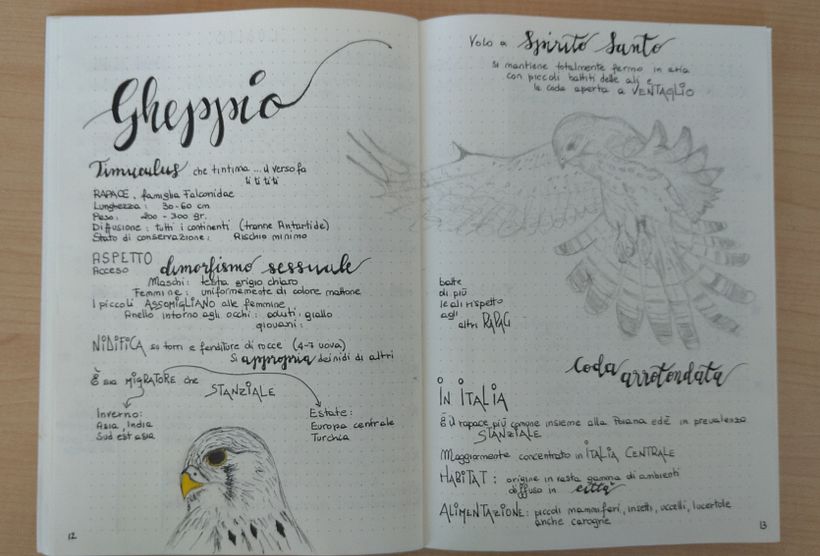 Gheppio
Tinnuculus che tintinna ... il verso fa
ti ti ti ti
RAPACE, famiglia Falconidae
Lunghezza: 30-60 cm
Peso: 200 - 300 gr.
Diffusione: tutti i continenti (tranne Antartide)
Stato di conservazione: Rischio minimo
ASPETTO
Acceso dimorfismo sessuale
Maschi: testa grigio chiaro
Femmine: uniformemente di colore mattone
I piccoli ASSOMIGLIANO alle femmine
Anello intorno agli occhi: aduti: giallo
giovani:
NIDIFICA su torri e fenditure di rocce (4-7 uova)
Si appropria dei nidi di altri
È sia MIGRATORE che
STANZIALE
Inverno:
Asia, India
Sud est asia
Estate:
Europa centrale
Turchia
12
Volo a Spirito Santo
Si mantiene totalmente fermo in aria
con piccoli battiti delle ali e
la coda aperta a VENTAGLIO
batte
di più
le ali rispetto
agli
altri RAPACI
Coda arrotondata
IN ITALIA
È il rapace più comune insieme alla Poiana ed è in prevalenza
STANZIALE
Maggiormente concentrato in ITALIA CENTRALE
HABITAT: origine in vasta gamma di ambienti
diffuso in città
ALIMENTAZIONE: piccoli mammiferi, insetti, uccelli, lucertole
anche carogne
13